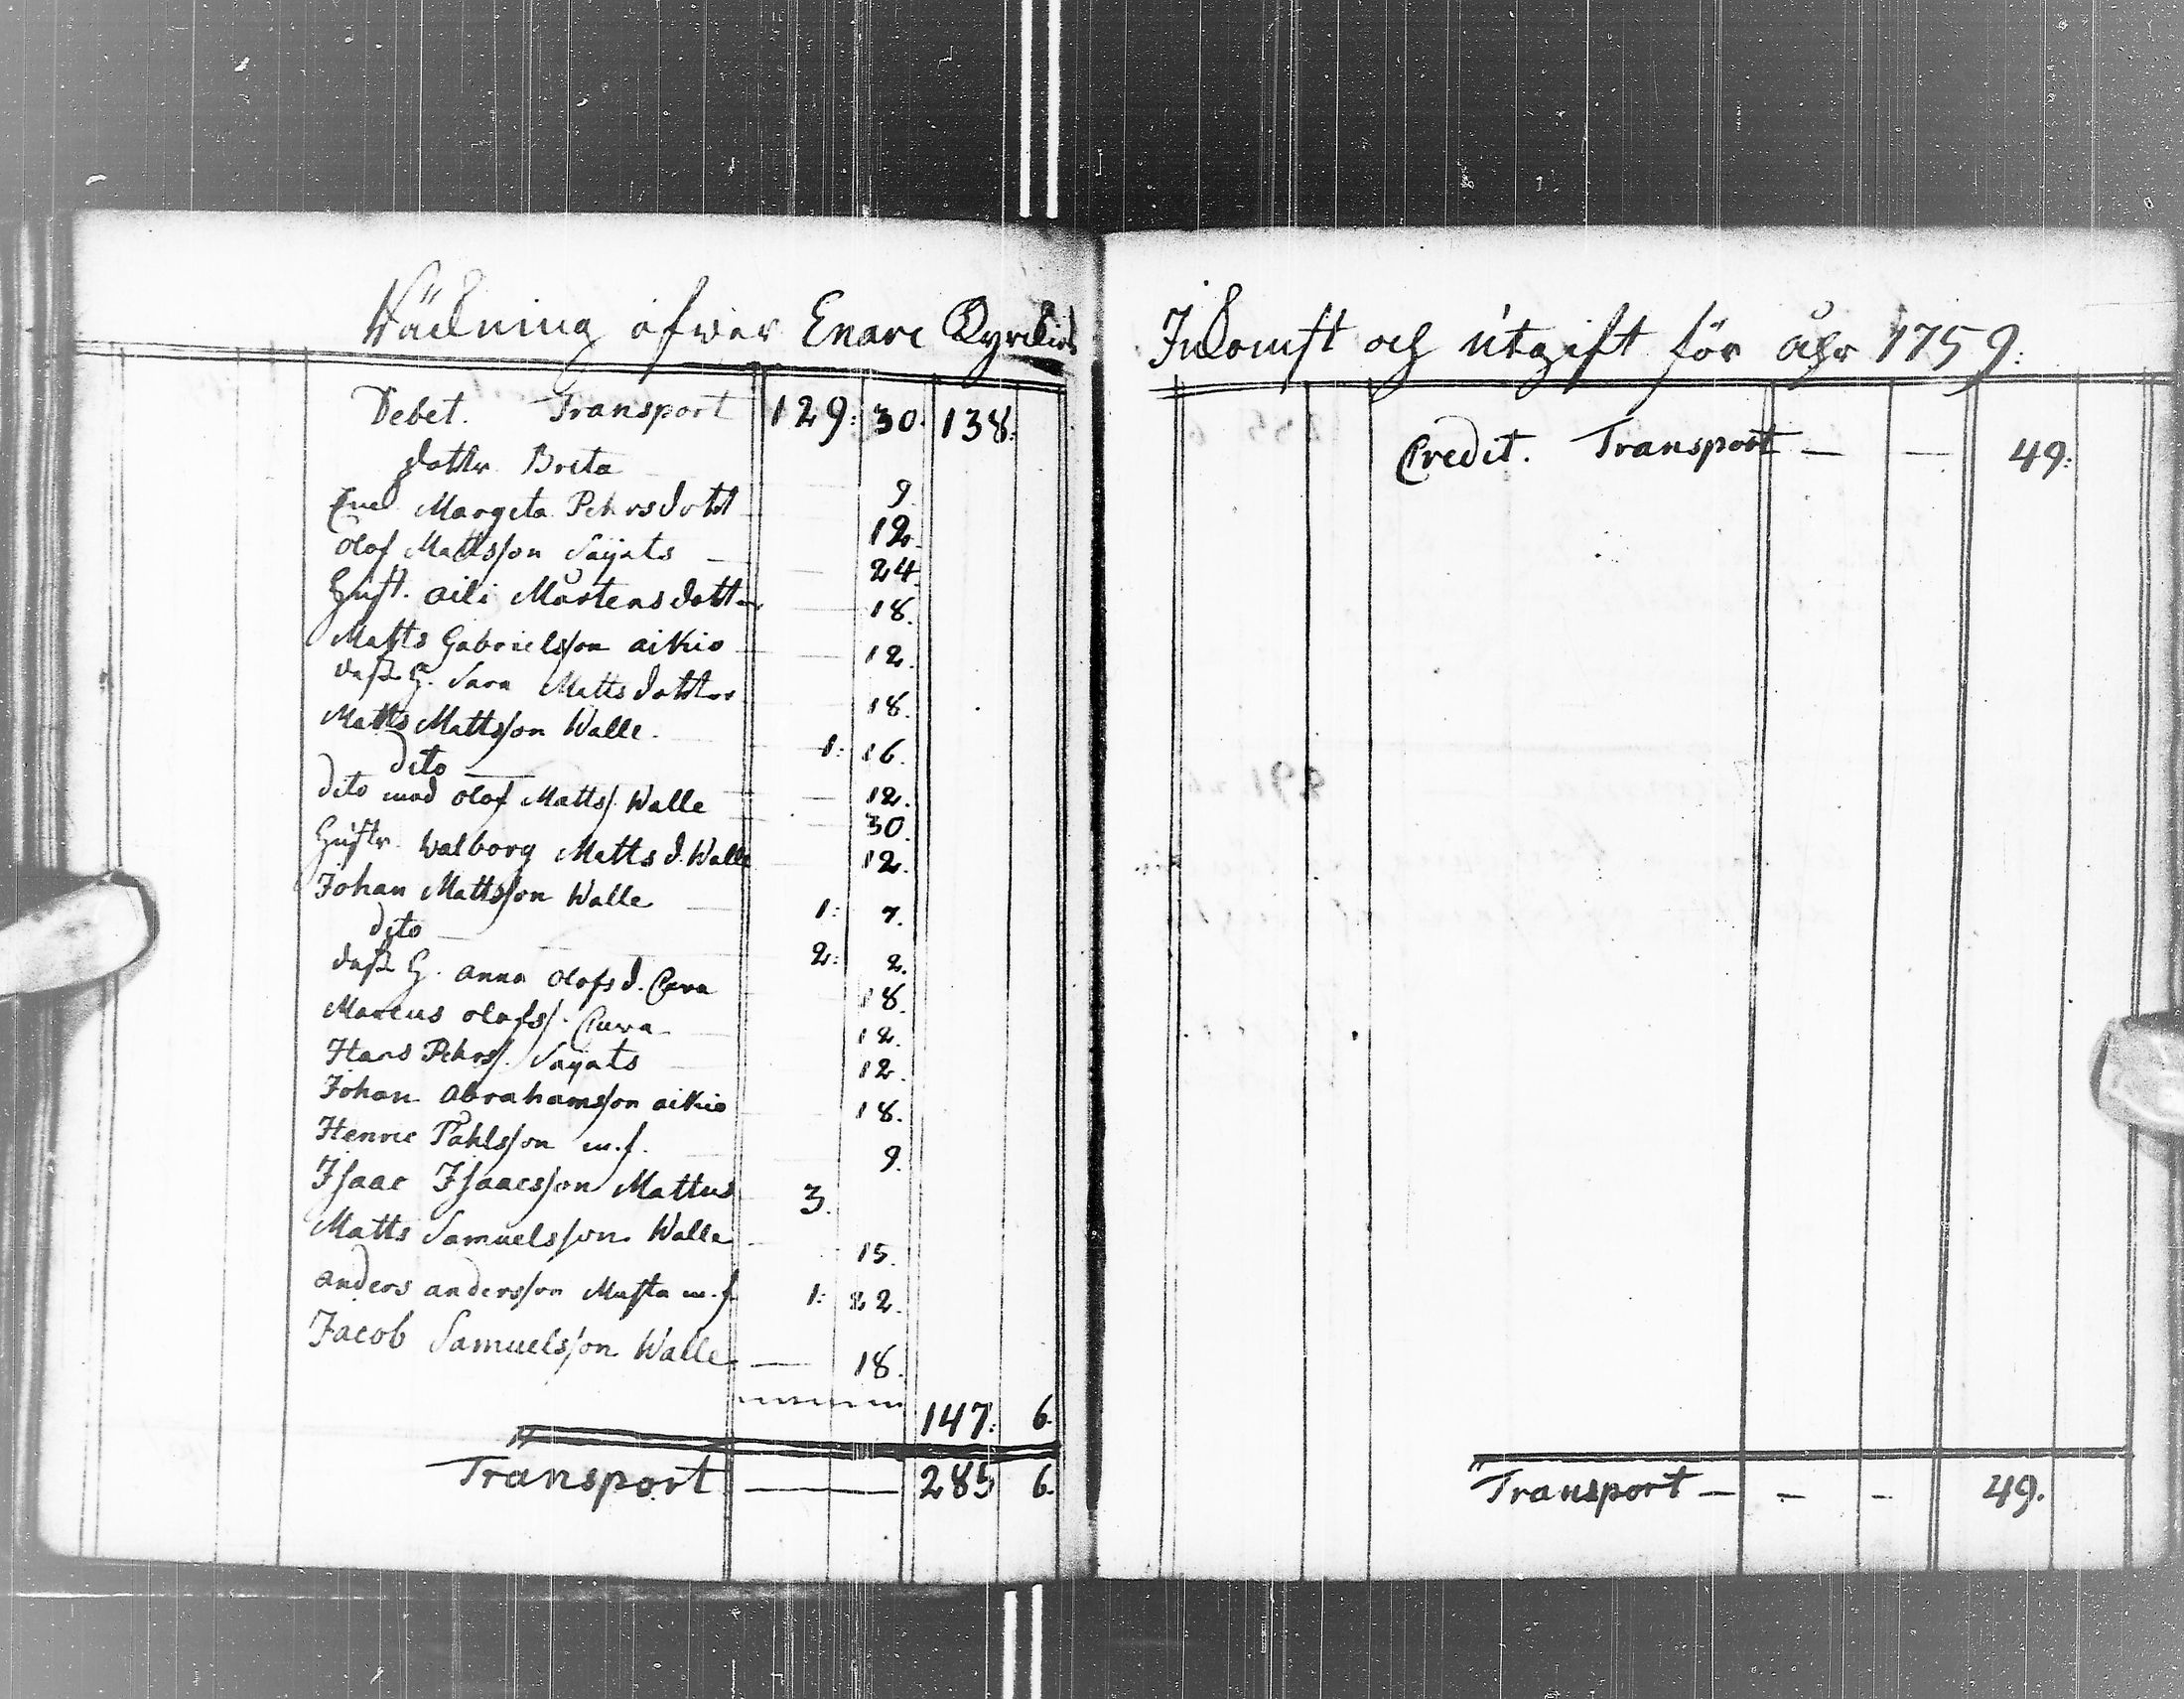 Räckning öfwer Enare Kyrckios
Debet. Transport 129: 30. 138:
dottr Brita 9.
Enck. Margeta Pehrsdott 12.
Olof Mattsson Sayats 24.
Hust. aili Mårtensdotter 18.
Matts Gabrielsson aikio 12.
dess H. Sara Mattsdotter 18.
Matts Mattsson Walle 1: 16.
dito 12.
dito med Olof Mattss. Walle 30.
Hustr. Walborg Matts d. Walle 12.
Johan Mattsson Walle 1: 7.
dito 2: 2.
dess H. Anna Olofs d. 18.
Marcus Olofss. 12.
Hans Pehrss. Sayats 12.
Johan Abrahamsson aikio 18.
Henric Påhlsson m.f. 9.
Isaac Isaacsson Mattus 3.
Matts Samuelsson Walle 15.
anders andersson Musta m.f. 1: 22.
Jacob Samuelsson Walle — 18.
147: 6.
Transport — 285 6.
Inkomst och utgift för åhr 1759:
Credit. Transport — — 49:
Transport — — — 49.